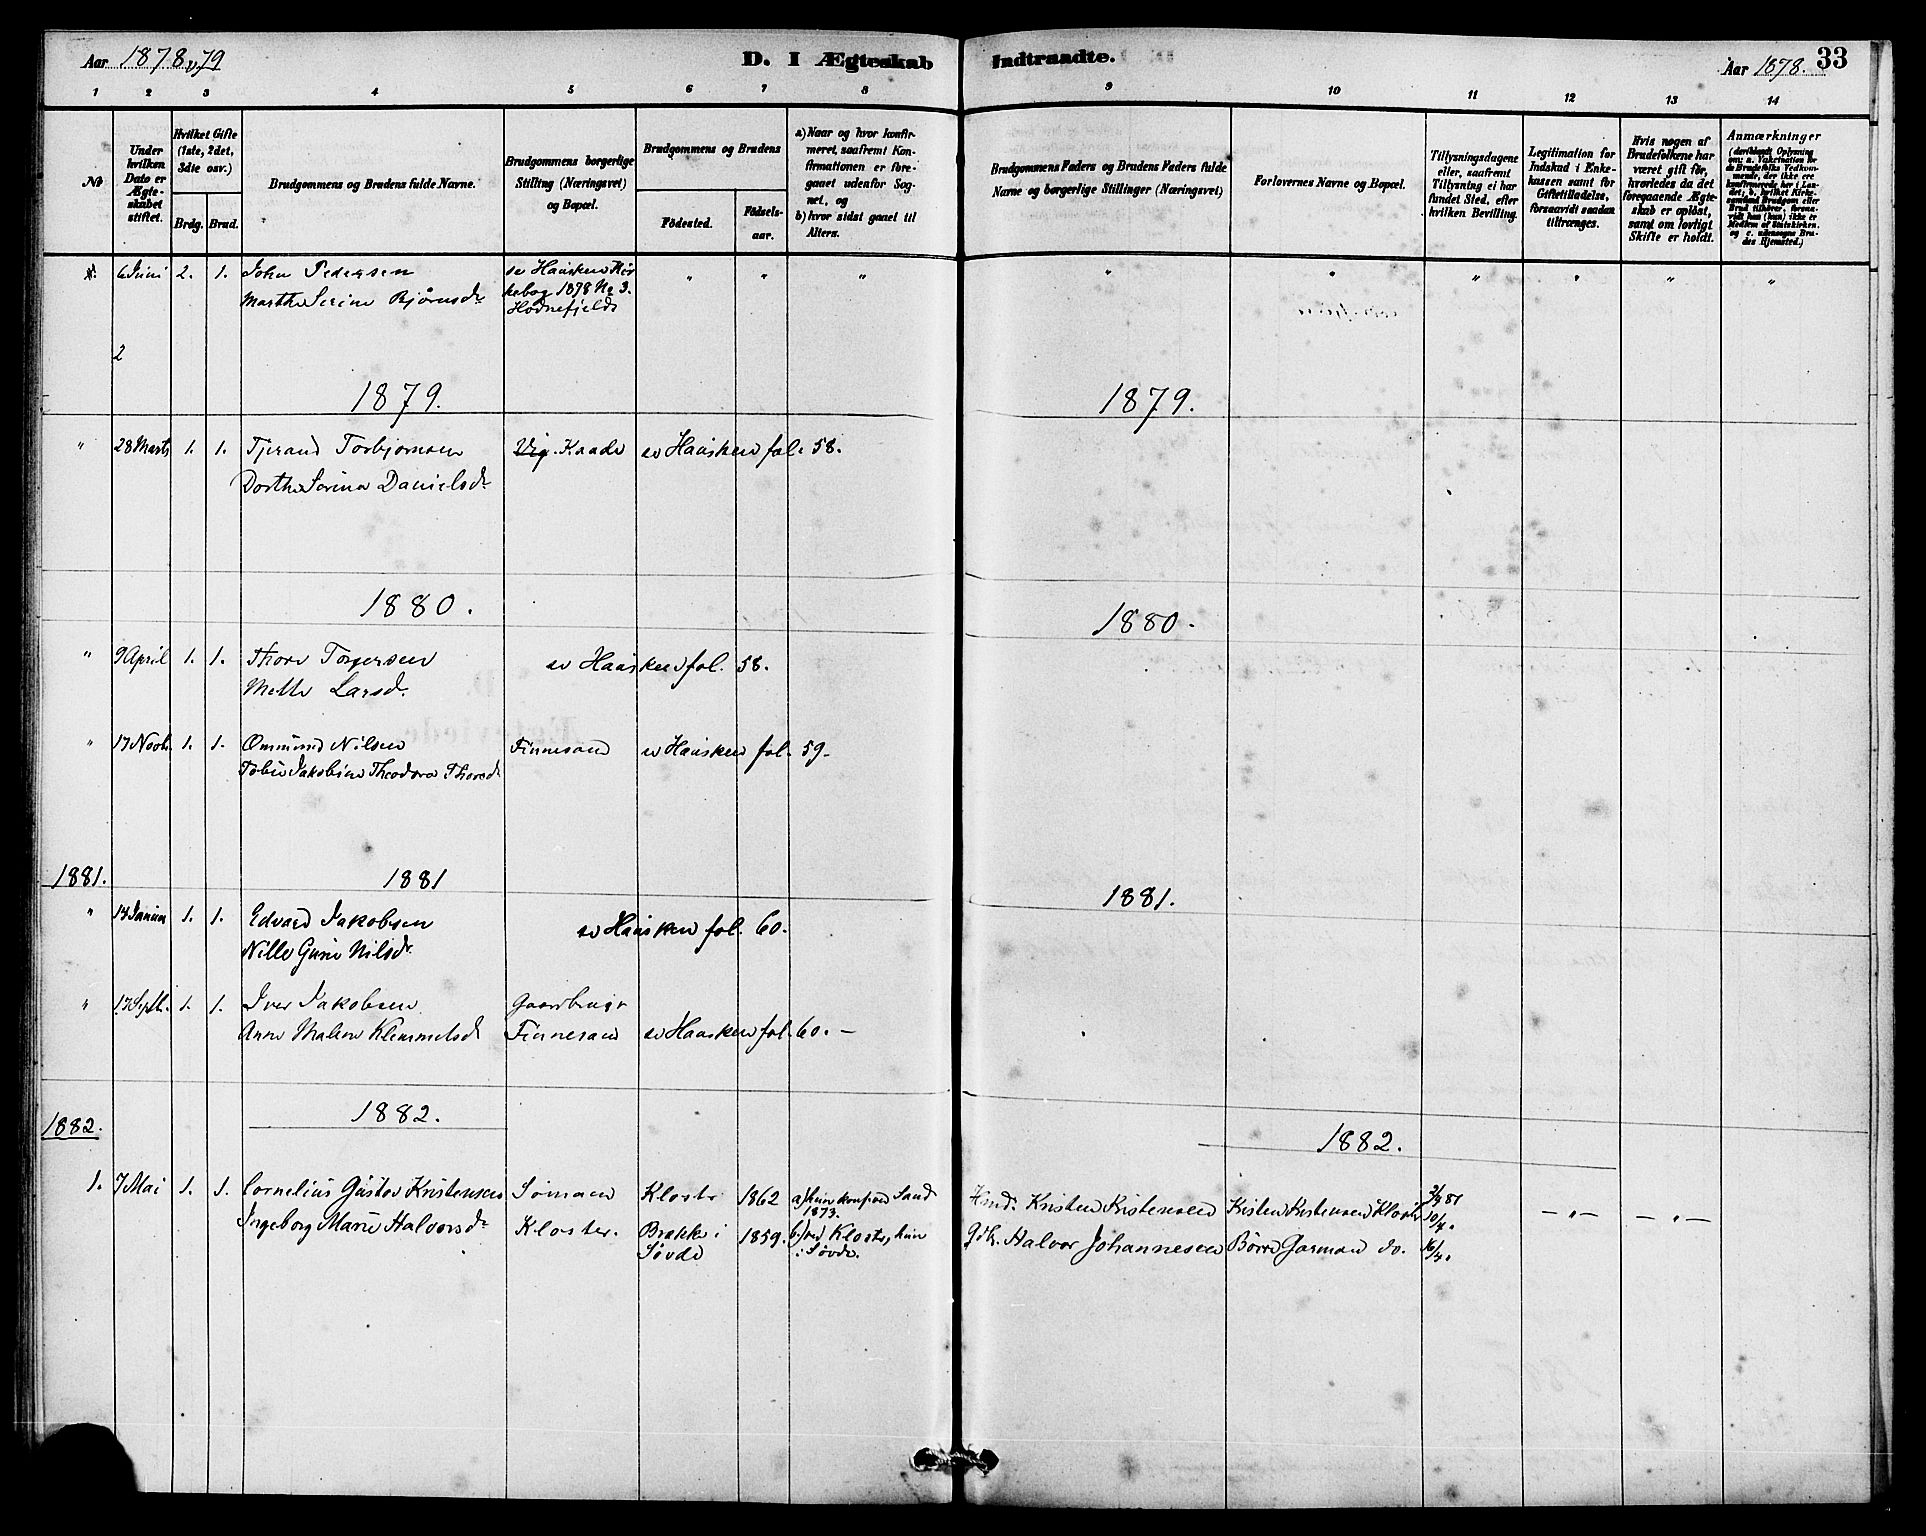 Aar 1878 & 79
D. I Ægteskab Indtraadte.
Aar 1878. 33
1 2 3 4 5 6 7 8 9 10 11 12 13 14
No
Under hvilken Dato er Ægteskabet stiftet.
Hvilket Gifte (1ste, 2det, 3die osv.)
Brdg. Brud.
Brudgommens og Brudens fulde Navne.
Brudgommens borgerlige Stilling (Næringsvei) og Bopæl.
Brudgommens og Brudens
Födested. Födselsaar.
a) Naar og hvor konfirmeret, saafremt Konfirmationen er foregaaet udenfor Sognet, og
b) hvor sidst gaaet til Alters.
Brudgommens Faders og Brudens Faders fulde Navne og borgerlige Stillinger (Næringsvei)
Forlovernes Navne og Bopæl.
Tillysningsdagene eller, saafremt Tillysning ei har fundet Sted, efter hvilken Bevilling.
Legitimation for Indskud i Enkekassen samt for Giftetilladelse, forsaavidt saadan tiltrænges.
Hvis nogen af Brudefolkene har været gift för, hvorledes da det foregaaende Ægteskab er oplöst, samt om lovligt Skifte er holdt.
Anmærkninger
6 Juni 2. 1. John Pedersen
Marthe Serine Bjørnsdr
se Haasken Kirkebog 1878 No 3.
Hodnefjeld
2
1879. 1879.
" 28 Marts 1. 1. Tjerand Torbjørnsen Vig. Kaade se Hausken fol. 58.
Dorthe Serine Danielsdr
1880. 1880.
" 9 April 1. 1. Thore Torgersen se Hausken fol. 58.
Mette Larsdr.
" 17 Novb. 1. 1. Ommund Nilsen Finnesand se Hausken fol. 59.
Jakobine Theodora Thorsdr
1881. 1881 1881.
" 1. 1. Edvard Jakobsen se Hausken fol. 60.
Nille Gurine Nilsdr.
" 17 Septb. 1. 1. Iver Jakobsen Gaardbruger
Anne Malene Klemmetsdr Finnesand se Hausken fol. 60. —
1882. 1882. 1882.
1. 7 Mai 1. 1. Cornelius Gustav Kristensen Sømand Kloster 1862 a) hun konf. ved Sand 1873. Kristen Kristensen Kristen Kristensen Kloster — " — — " —
Ingeborg Marie Halvorsdr Kloster. Brakke i Søvde 1859. b) ved Kloster, hun i Søvde. Halvor Johannesen Børre Garman do.